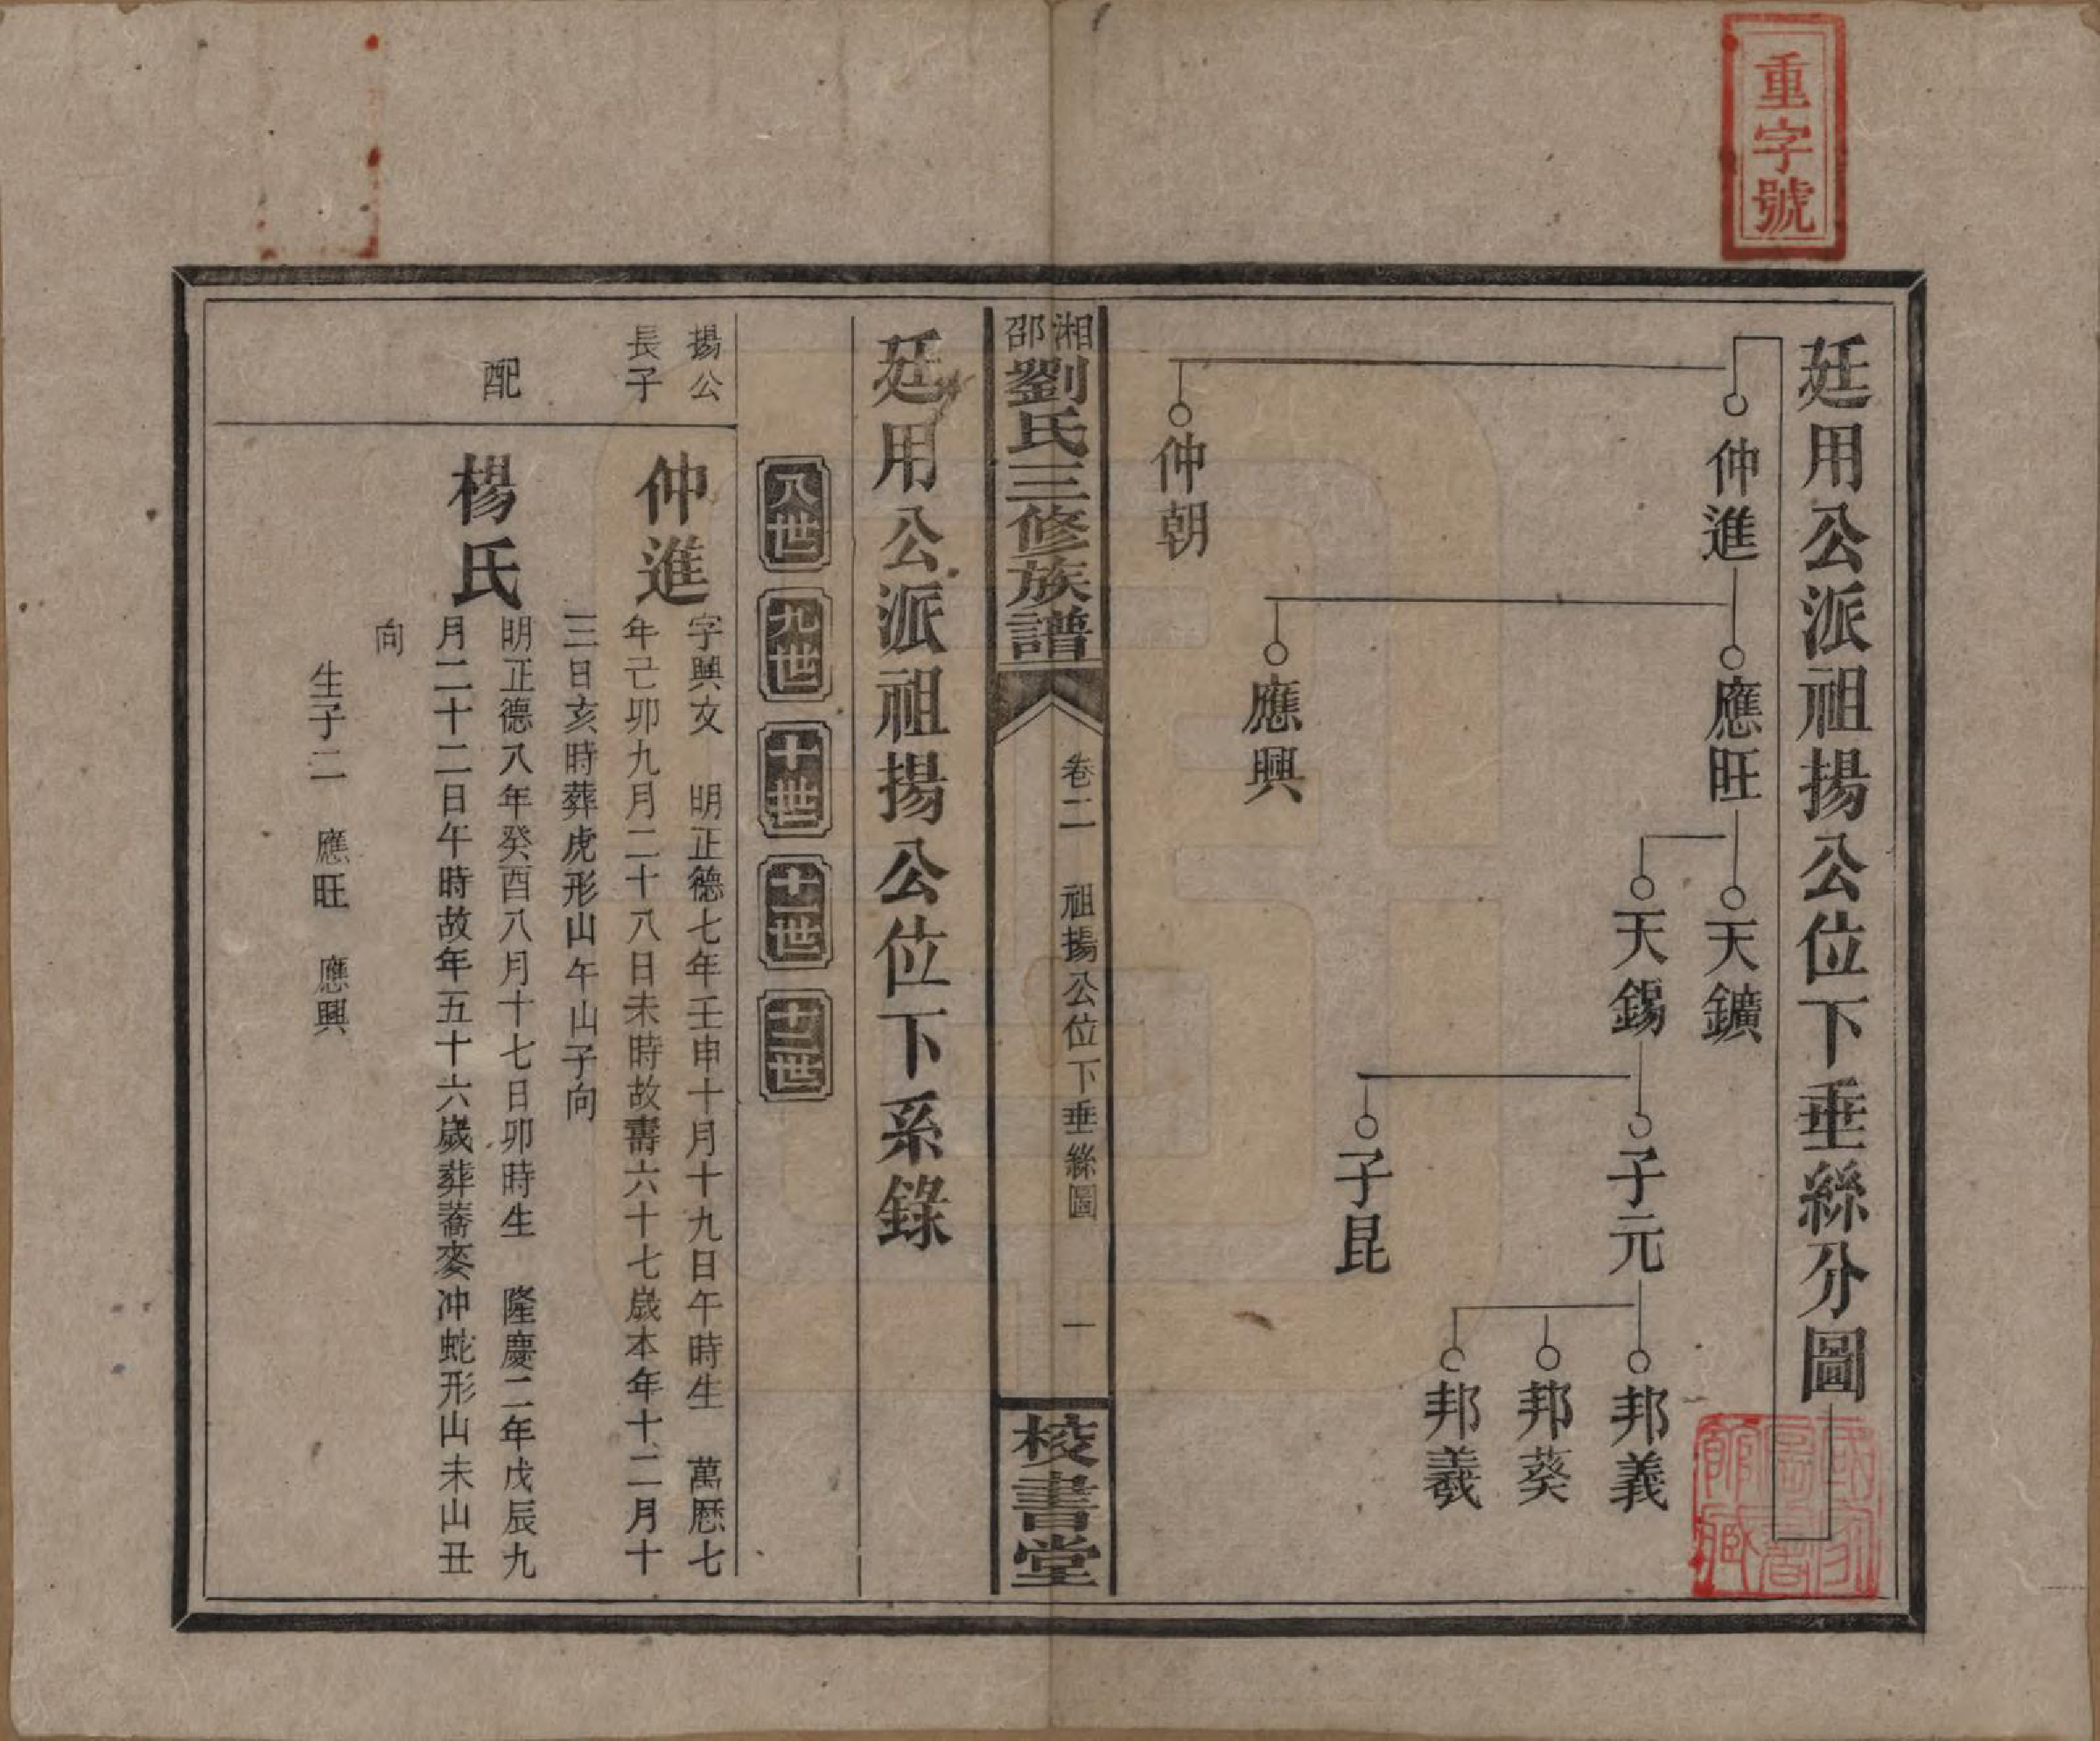 重字號
廷用公派祖揚公位下垂絲分圖
仲進
仲朝
應旺
應興
天鑛
天錫
子元
子昆
邦義
邦葵
邦羲
湘邵劉氏三修族譜
卷二 祖揚公位下垂絲圖 一
校書堂
廷用公派祖揚公位下系錄
八世 九世 十世 十一世 十二世
揚公
長子
仲進
字興友 明正德七年壬申十月十九日午時生 萬歷七
年己卯九月二十八日未時故壽六十七歲本年十二月十
三日亥時葬虎形山午山子向
配
楊氏
明正德八年癸酉八月十七日卯時生 隆慶二年戊辰九
月二十二日午時故年五十六歲葬蕎麥冲蛇形山未山丑
向
生子二 應旺 應興
國家圖書館藏